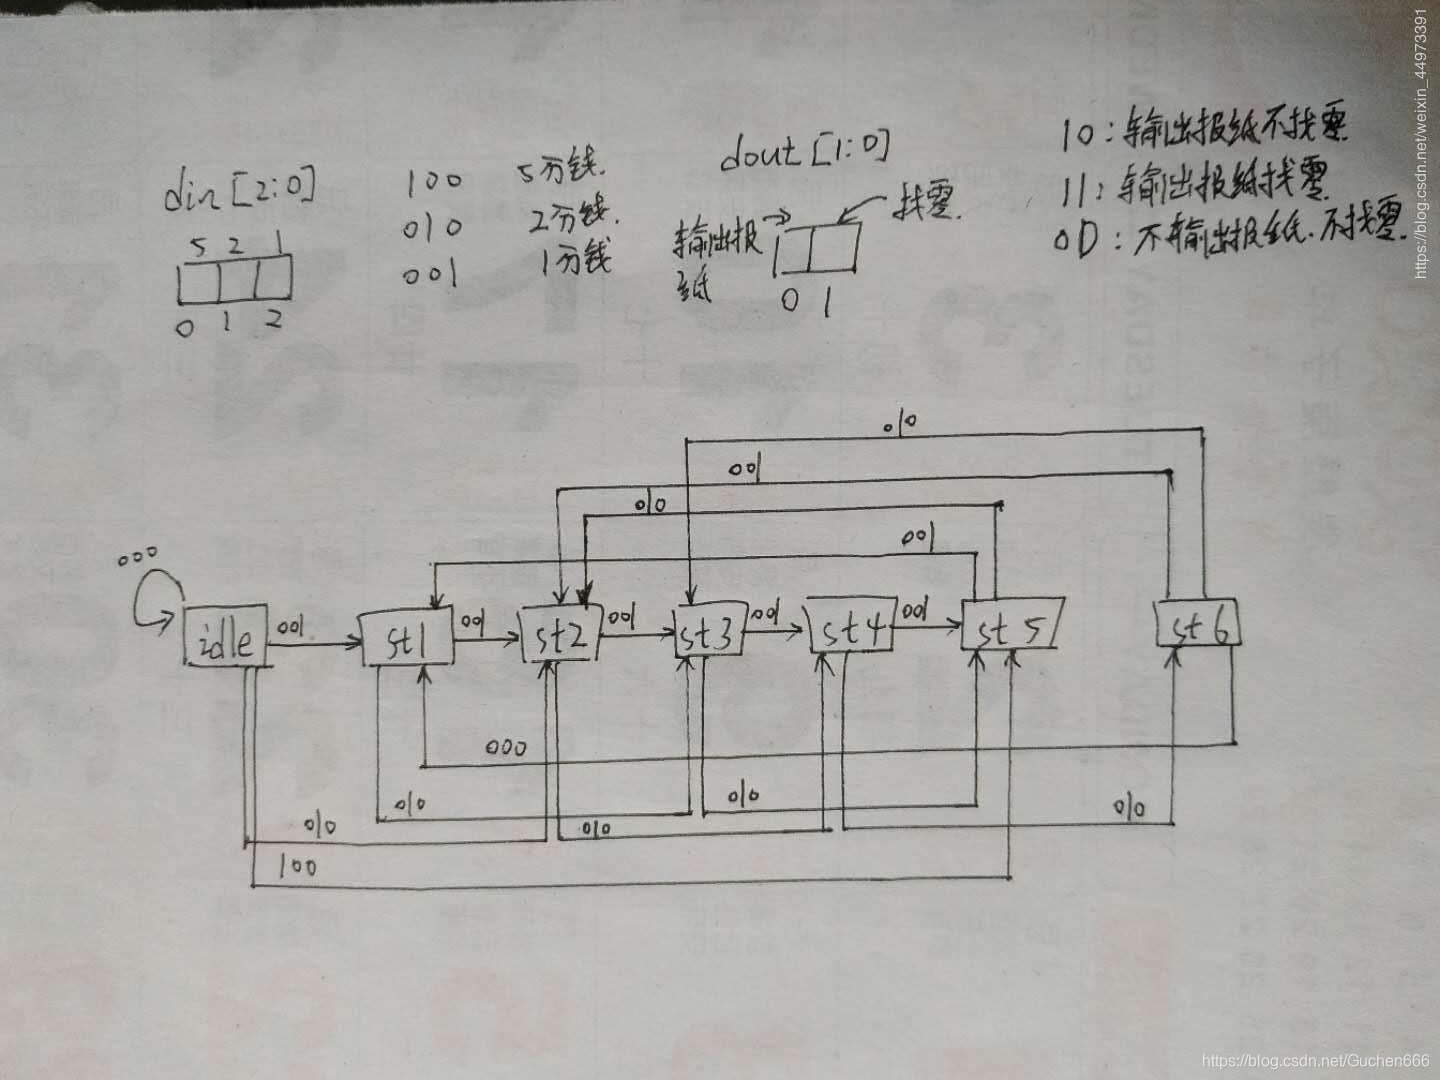 din[2:0]
5 2 1
0 1 2
100 5分钱.
010 2分钱.
001 1分钱
dout[1:0]
输出报纸
找零.
0 1
10:输出报纸不找零
11:输出报纸找零
00:不输出报纸.不找零.
010
001
010
001
000
idle
001
st1
001
st2
001
st3
001
st4
001
st5
st6
000
010
010
010
010
010
100
https://blog.csdn.net/weixin_44973391
https://blog.csdn.net/Guchen666